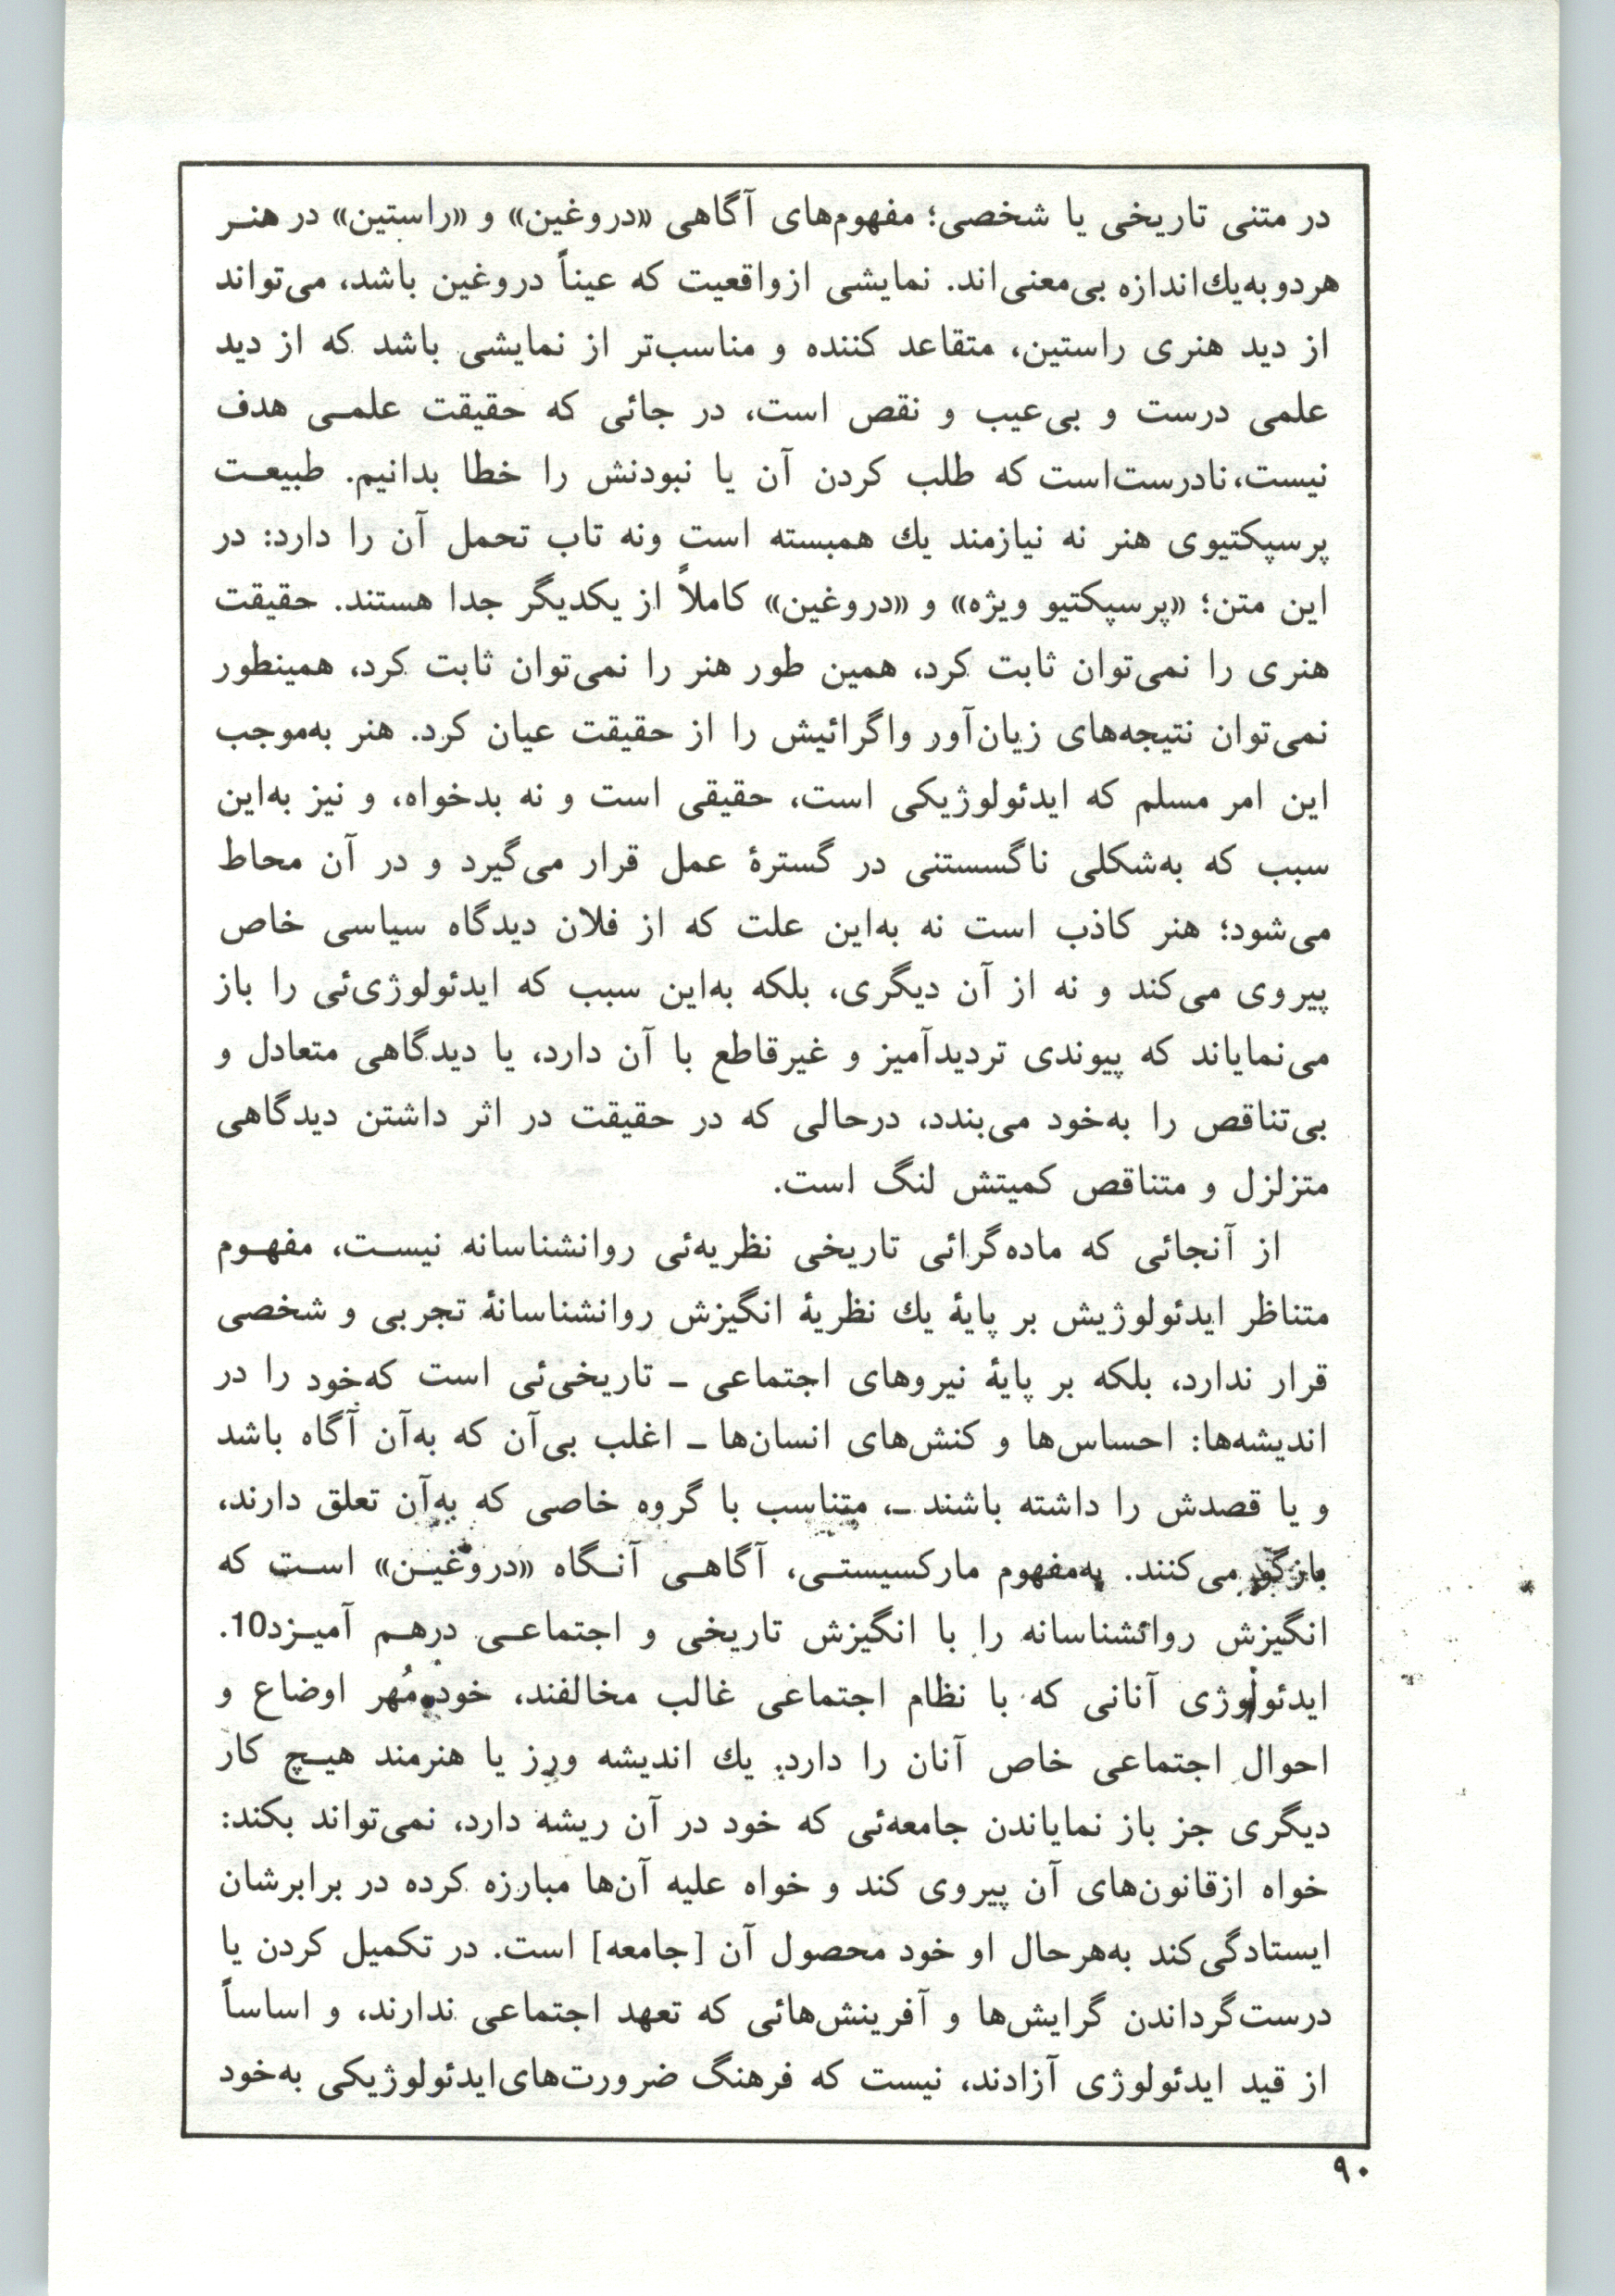 در متنی تاریخی یا شخصی؛ مفهوم‌های آگاهی «دروغین» و «راستین» در هنـر
هردو به‌یك‌اندازه بی‌معنی‌اند. نمایشی ازواقعیت که عیناً دروغین باشد، می‌تواند
از دید هنری راستین، متقاعد کننده و مناسب‌تر از نمایشی باشد که از دید
علمی درست و بی‌عیب و نقص است، در جائی که حقیقت علمـی هدف
نیست، نادرست‌است که طلب کردن آن یا نبودنش را خطا بدانیم. طبیعـت
پرسپکتیوی هنر نه نیازمند یك همبسته است ونه تاب تحمل آن را دارد: در
این متن؛ «پرسپکتیو ویژه» و «دروغین» کاملاً از یکدیگر جدا هستند. حقیقت
هنری را نمی‌توان ثابت کرد، همین طور هنر را نمی‌توان ثابت کرد، همینطور
نمی‌توان نتیجه‌های زیان‌آور واگرائیش را از حقیقت عیان کرد. هنر به‌موجب
این امر مسلم که ایدئولوژیکی است، حقیقی است و نه بدخواه، و نیز به‌این
سبب که به‌شکلی ناگسستنی در گسترهٔ عمل قرار می‌گیرد و در آن محاط
می‌شود؛ هنر کاذب است نه به‌این علت که از فلان دیدگاه سیاسی خاص
پیروی می‌کند و نه از آن دیگری، بلکه به‌این سبب که ایدئولوژی‌ئی را باز
می‌نمایاند که پیوندی تردیدآمیز و غیرقاطع با آن دارد، یا دیدگاهی متعادل و
بی‌تناقص را به‌خود می‌بندد، درحالی که در حقیقت در اثر داشتن دیدگاهی
متزلزل و متناقص کمیتش لنگ است.
از آنجائی که ماده‌گرائی تاریخی نظریه‌ئی روانشناسانه نیسـت، مفهـوم
متناظر ایدئولوژیش بر پایهٔ یك نظریهٔ انگیزش روانشناسانهٔ تجربی و شخصی
قرار ندارد، بلکه بر پایهٔ نیروهای اجتماعی ـ تاریخی‌ئی است که‌خود را در
اندیشه‌ها: احساس‌ها و کنش‌های انسان‌ها ـ اغلب بی‌آن که به‌آن آگاه باشد
و یا قصدش را داشته باشند ـ، متناسب با گروه خاصی که به‌آن تعلق دارند،
بازگو می‌کنند. به‌مفهوم مارکسیستـی، آگاهـی آنـگاه «دروغیـن» اسـت که
انگیزش روانشناسانه را با انگیزش تاریخی و اجتماعـی درهـم آمیـزد10.
ایدئولوژی آنانی که با نظام اجتماعی غالب مخالفند، خود مُهر اوضاع و
احوال اجتماعی خاص آنان را دارد. یك اندیشه ورز یا هنرمند هیـچ کار
دیگری جز باز نمایاندن جامعه‌ئی که خود در آن ریشه دارد، نمی‌تواند بکند:
خواه ازقانون‌های آن پیروی کند و خواه علیه آن‌ها مبارزه کرده در برابرشان
ایستادگی‌کند به‌هرحال او خود محصول آن [جامعه] است. در تکمیل کردن یا
درست‌گرداندن گرایش‌ها و آفرینش‌هائی که تعهد اجتماعی ندارند، و اساساً
از قید ایدئولوژی آزادند، نیست که فرهنگ ضرورت‌های‌ایدئولوژیکی به‌خود
۹۰